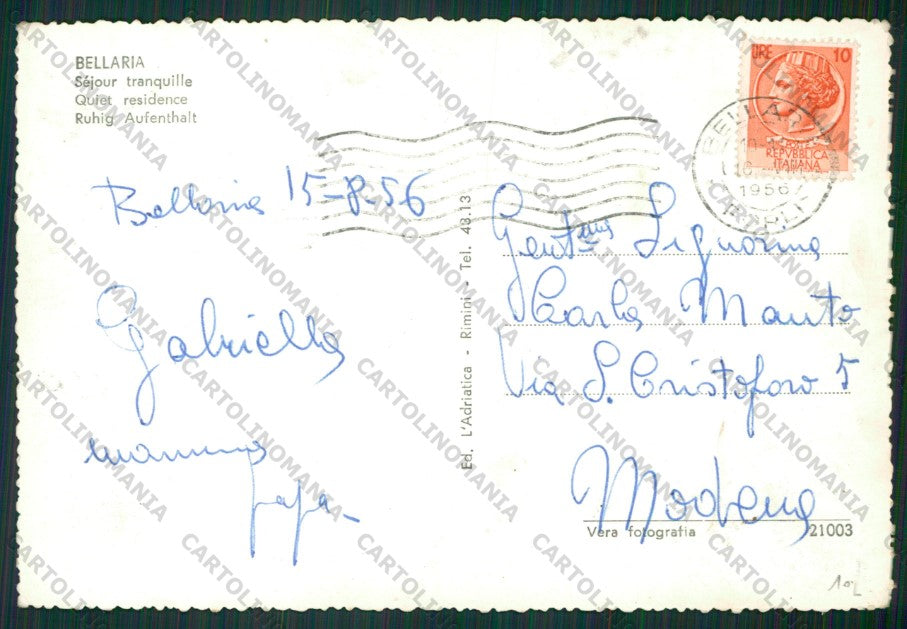 BELLARIA
Séjour tranquille
Quiet residence
Ruhig Aufenthalt
LIRE 10
REPVBBLICA
ITALIANA
BELLARIA
1956
FORLI
Bellaria 15-8-56
Gabriella
mamma
papa-
Ed. L'Adriatica - Rimini - Tel. 43.13
Gent.ma Signorina
Carla Manto
Via S. Cristoforo 5
Modena
Vera fotografia 21003
CARTOLINOMANIA